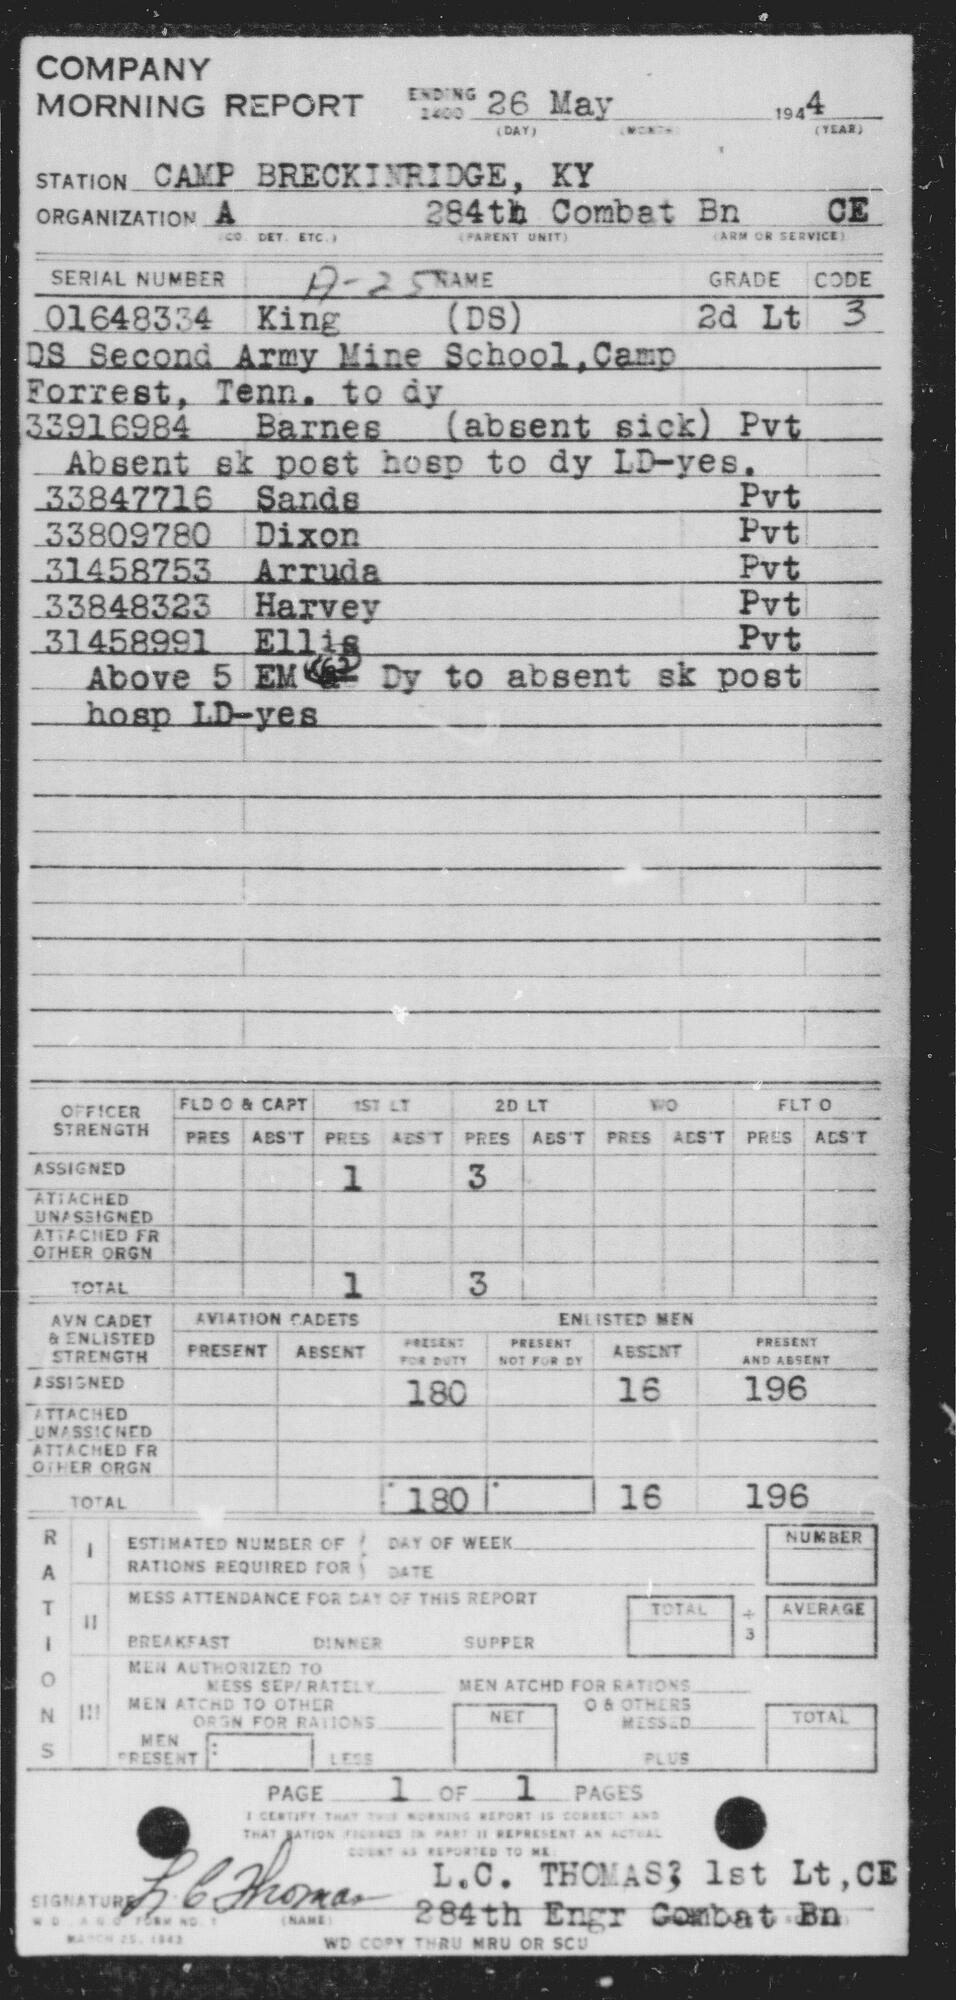 COMPANY
MORNING REPORT ENDING 2400 26 May 1944
(DAY) (MONTH) (YEAR)
STATION CAMP BRECKINRIDGE, KY
ORGANIZATION A 284th Combat Bn CE
(CO. DET. ETC.) (PARENT UNIT) (ARM OR SERVICE)
SERIAL NUMBER A-25 NAME GRADE CODE
01648334 King (DS) 2d Lt 3
DS Second Army Mine School,Camp
Forrest, Tenn. to dy
33916984 Barnes (absent sick) Pvt
Absent sk post hosp to dy LD-yes.
33847716 Sands Pvt
33809780 Dixon Pvt
31458753 Arruda Pvt
33848323 Harvey Pvt
31458991 Ellis Pvt
Above 5 EM Dy to absent sk post
hosp LD-yes
OFFICER STRENGTH FLD O & CAPT 1ST LT 2D LT WO FLT O
PRES ABS'T PRES ABS'T PRES ABS'T PRES ABS'T PRES ABS'T
ASSIGNED 1 3
ATTACHED UNASSIGNED
ATTACHED FR OTHER ORGN
TOTAL 1 3
AVN CADET & ENLISTED STRENGTH AVIATION CADETS ENLISTED MEN
PRESENT ABSENT PRESENT FOR DUTY PRESENT NOT FOR DY ABSENT PRESENT AND ABSENT
ASSIGNED 180 16 196
ATTACHED UNASSIGNED
ATTACHED FR OTHER ORGN
TOTAL 180 16 196
RATIONS
I ESTIMATED NUMBER OF DAY OF WEEK NUMBER
RATIONS REQUIRED FOR DATE
II MESS ATTENDANCE FOR DAY OF THIS REPORT TOTAL ÷ 3 AVERAGE
BREAKFAST DINNER SUPPER
III MEN AUTHORIZED TO
MESS SEPARATELY MEN ATCHD FOR RATIONS
MEN ATCHD TO OTHER O & OTHERS
ORGN FOR RATIONS NET MESSED TOTAL
MEN PRESENT LESS PLUS
PAGE 1 OF 1 PAGES
I CERTIFY THAT THIS MORNING REPORT IS CORRECT AND
THAT RATION FIGURES IN PART II REPRESENT AN ACTUAL
COUNT AS REPORTED TO ME:
L.C. THOMAS, 1st Lt,CE
SIGNATURE L C Thomas
284th Engr Combat Bn
W.D., A.G.O. FORM NO. 1 (NAME)
MARCH 25, 1943
WD COPY THRU MRU OR SCU